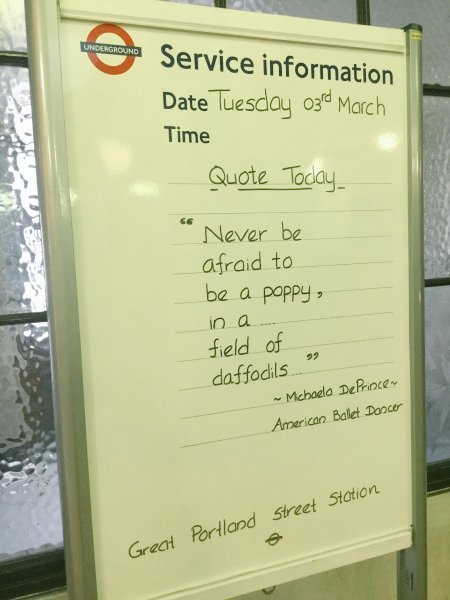 UNDERGROUND
Service information
Date Tuesday 03rd March
Time
Quote Today
“ Never be
afraid to
be a poppy,
in a ....
field of
daffodils... ”
~ Michaela DePrince ~
American Ballet Dancer
Great Portland Street Station